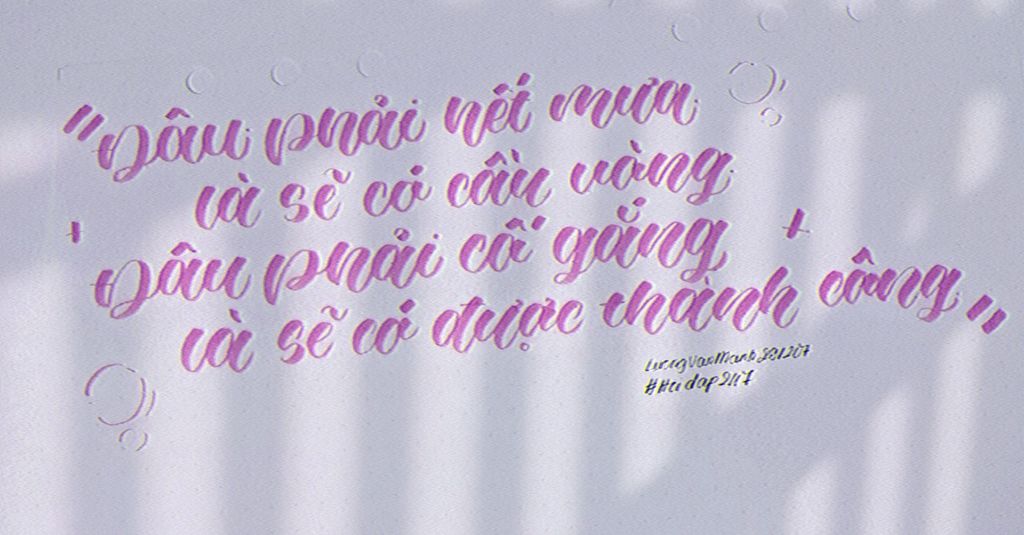 "Đâu phải hết mưa
là sẽ có cầu vồng
Đâu phải cố gắng
là sẽ có được thành công"
LuongVanManh281207
#Hoidap247